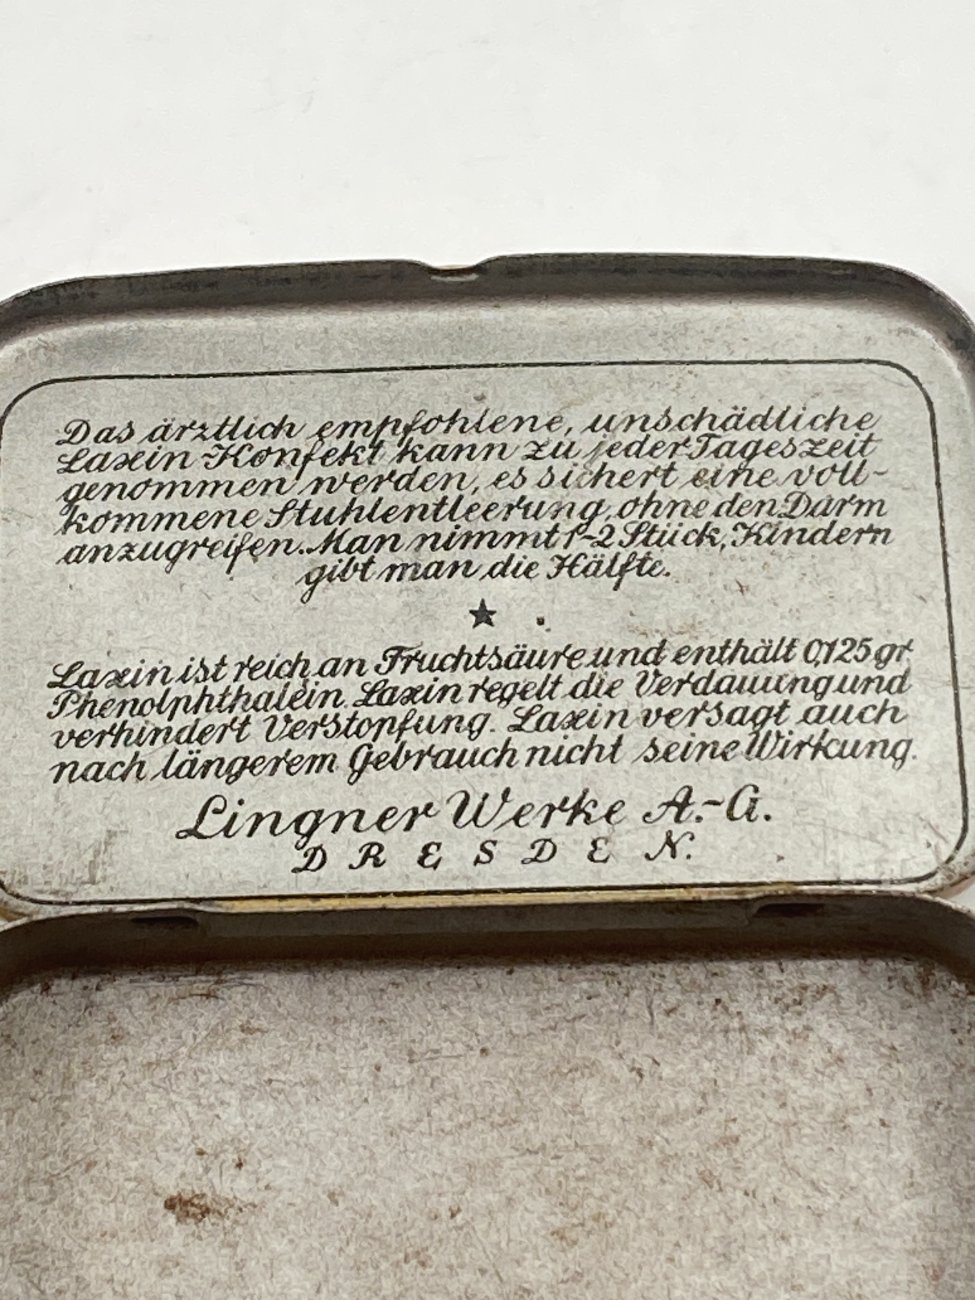 Das ärztlich empfohlene, unschädliche
Laxin-Konfekt kann zu jeder Tageszeit
genommen werden, es sichert eine voll-
kommene Stuhlentleerung, ohne den Darm
anzugreifen. Man nimmt 1-2 Stück, Kindern
gibt man die Hälfte.
★
Laxin ist reich an Fruchtsäure und enthält 0,125 gr
Phenolphthalein. Laxin regelt die Verdauung und
verhindert Verstopfung. Laxin versagt auch
nach längerem Gebrauch nicht seine Wirkung.
Lingner Werke A.-G.
DRESDEN.